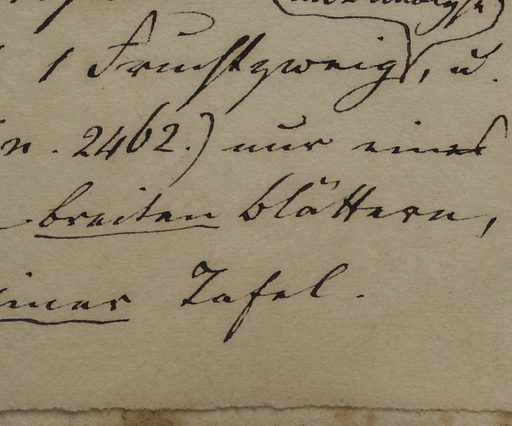 1 Fruchtzweig, u.
n. 2462.) nur eines
breiten Blättern,
einer Tafel.